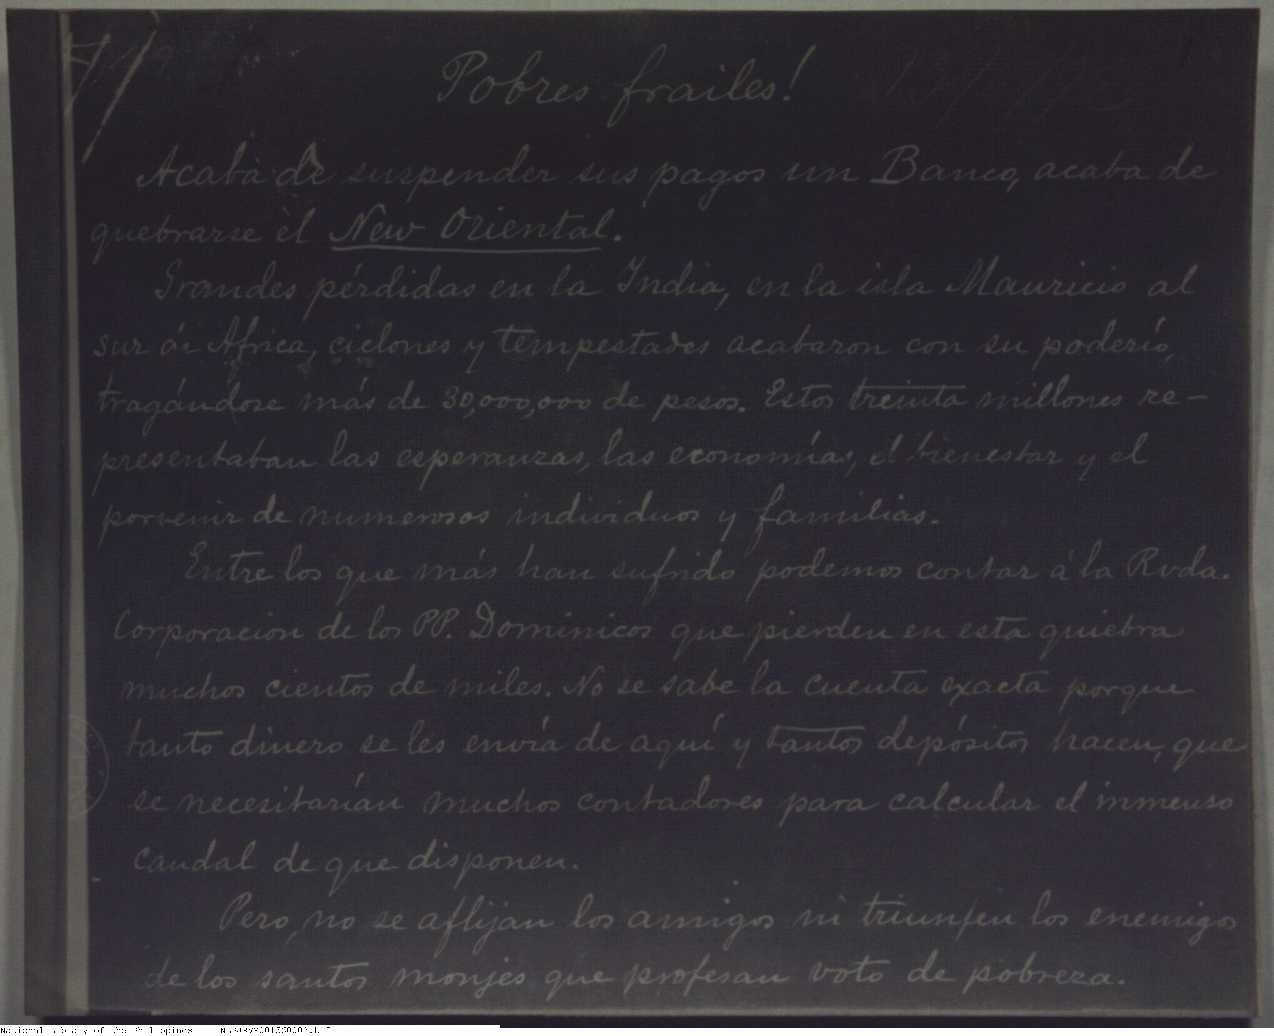 Pobres frailes!
Acaba de suspender sus pagos un Banco, acaba de
quebrarse el New Oriental.
Grandes pérdidas en la India, en la isla Mauricio al
sur de Africa, ciclones y tempestades acabaron con su poderío,
tragándose más de 30,000,000 de pesos. Estos treinta millones re-
presentaban las esperanzas, las economías, el bienestar y el
porvenir de numerosos individuos y familias.
Entre los que más han sufrido podemos contar á la Rvda.
Corporacion de los PP. Dominicos que pierden en esta quiebra
muchos cientos de miles. No se sabe la cuenta exacta porque
tanto dinero se les envía de aquí y tantos depósitos hacen, que
se necesitarían muchos contadores para calcular el inmenso
caudal de que disponen.
Pero, no se aflijan los amigos ni triunfen los enemigos
de los santos monjes que profesan voto de pobreza.
National Library of the Philippines